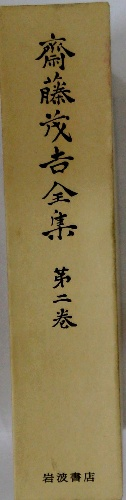 齋藤茂吉全集
第二巻
岩波書店